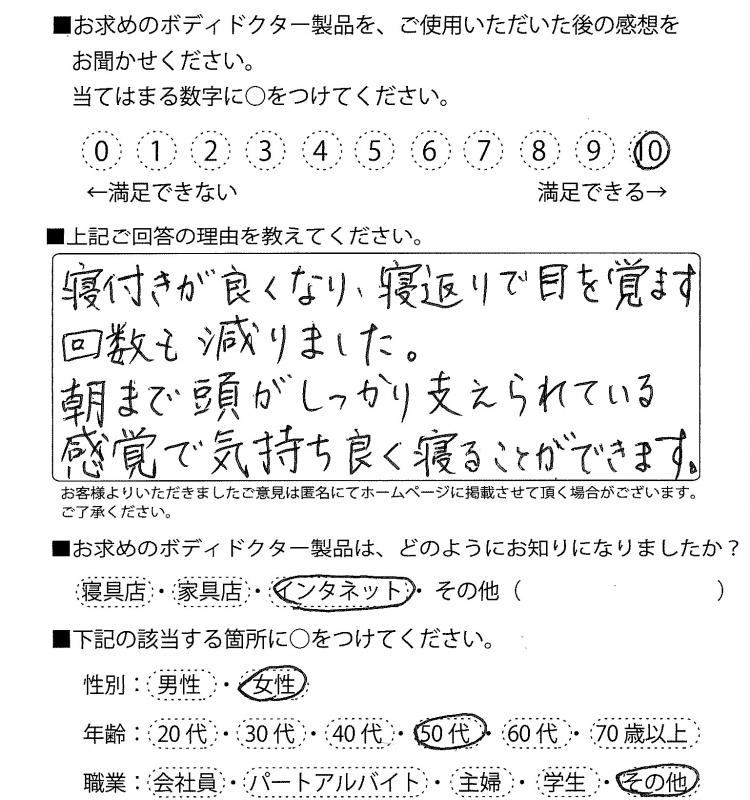 ■お求めのボディドクター製品を、ご使用いただいた後の感想を
お聞かせください。
当てはまる数字に○をつけてください。
0 1 2 3 4 5 6 7 8 9 10
←満足できない 満足できる→
■上記ご回答の理由を教えてください。
寝付きが良くなり、寝返りで目を覚ます
回数も減りました。
朝まで頭がしっかり支えられている
感覚で気持ち良く寝ることができます。
お客様よりいただきましたご意見は匿名にてホームページに掲載させて頂く場合がございます。
ご了承ください。
■お求めのボディドクター製品は、どのようにお知りになりましたか？
寝具店・家具店・インタネット・その他（ ）
■下記の該当する箇所に○をつけてください。
性別：男性・女性
年齢：20代・30代・40代・50代・60代・70歳以上
職業：会社員・パートアルバイト・主婦・学生・その他